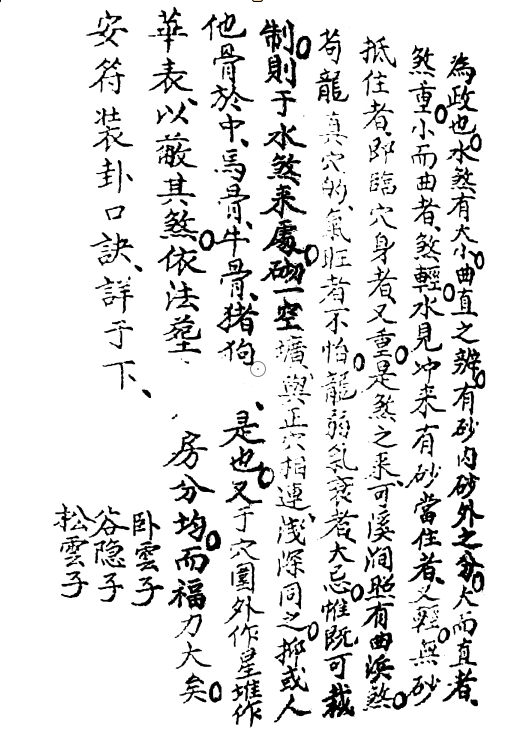 為政也。水煞有大小曲直之辨。有砂内砂外之分。大而直者、
煞重。小而曲者、煞輕。水見冲来有砂當住者、又輕。無砂
抵住者、即臨穴身者、又重。是煞之来、可溪澗照有曲浜煞。
苟龍真穴的、氣旺者不怕。龍弱氣衰者、大忌。惟既可裁
制。則于水煞来處。砌一空壙、與正穴相連、浅深同之。抑或人
他骨於中、馬骨、牛骨、猪狗、是也。又于穴圍外作星堆作
華表、以蔽其煞。依法塟 房分均。而福力大矣。
安符裝卦口訣、詳于下、
卧雲子
谷隐子
松雲子